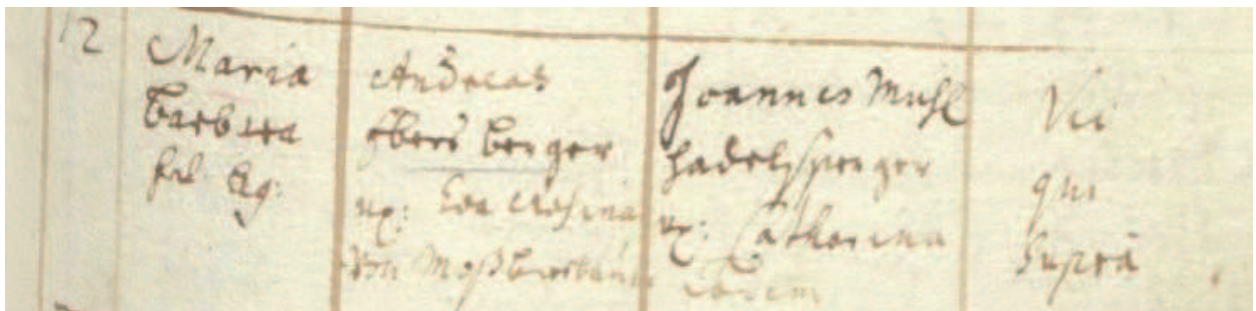 12
Maria
Barbara
fil: leg:
Andreas
Ebers berger
ux: Eva Rosina
von
Joannes Mühl
hadelsperger
ux: Catharina
Ibidem
Vic
qui
Suprà